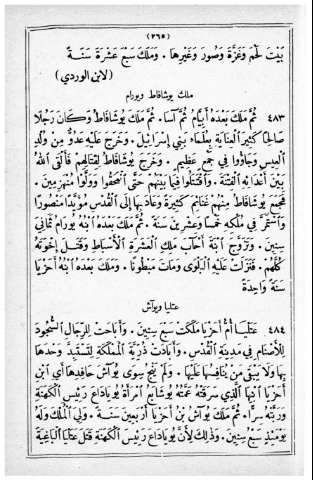 (٢٦٥)
بَيْتَ لَحْمَ وَغَزَّةَ وَصُورَ وَغَيْرَهَا . وَمَلَكَ سَبْعَ عَشْرَةَ سَنَةً
(لابن الوردي)
ملك يوشافاط ويورام
٤٨٣ ثُمَّ مَلَكَ بَعْدَهُ أَبِيَّامُ ثُمَّ آسَا . ثُمَّ مَلَكَ يُوشَافَاطُ وَكَانَ رَجُلًا
صَالِحًا كَثِيرَ الْعِنَايَةِ بِعُلَمَاءِ بَنِي إِسْرَائِيلَ . وَخَرَجَ عَلَيْهِ عَدُوٌّ مِنْ وُلْدِ
الْعِيسِ وَجَاؤُوا فِي جَمْعٍ عَظِيمٍ . وَخَرَجَ يُوشَافَاطُ لِقِتَالِهِمْ فَأَلْقَى اللهُ
بَيْنَ أَعْدَائِهِ الْفِتْنَةَ . وَاقْتَتَلُوا فِيمَا بَيْنَهُمْ حَتَّى انْمَحَقُوا وَوَلَّوْا مُنْهَزِمِينَ .
فَجَمَعَ يُوشَافَاطُ مِنْهُمْ غَنَائِمَ كَثِيرَةً وَعَادَ بِهَا إِلَى الْقُدْسِ مُؤَيَّدًا مَنْصُورًا
وَاسْتَمَرَّ فِي مُلْكِهِ خَمْسًا وَعِشْرِينَ سَنَةً . ثُمَّ مَلَكَ ابْنُهُ يُورَامُ ثَمَانِيَ
سِنِينَ . وَتَزَوَّجَ ابْنَةَ أَحَابَ مَلِكِ الْعَشَرَةِ الْأَسْبَاطِ وَقَتَلَ إِخْوَتَهُ
كُلَّهُمْ . فَنَزَلَتْ عَلَيْهِ الْبَلْوَى وَمَاتَ مَبْطُونًا . وَمَلَكَ بَعْدَهُ ابْنُهُ أَحَزْيَا
سَنَةً وَاحِدَةً
عتليا ويوآش
٤٨٤ عَتَلْيَا أُمُّ أَحَزْيَا مَلَكَتْ سَبْعَ سِنِينَ . وَأَبَاحَتْ لِلرِّجَالِ السُّجُودَ
لِلْأَصْنَامِ فِي مَدِينَةِ الْقُدْسِ . وَأَبَادَتْ ذُرِّيَّةَ الْمَمْلَكَةِ لِتَسْتَبِدَّ وَحْدَهَا
بِهَا وَلَا يَبْقَى مَنْ يُنَافِسُهَا عَلَيْهَا . وَلَمْ يَنْجُ سِوَى يُوآشَ حَافِدِهَا أَيِ ابْنِ
أَحَزْيَا ابْنِهَا الَّذِي سَرَقَتْهُ عَمَّتُهُ يُوشَابَعُ امْرَأَةُ يُويَادَاعَ رَئِيسِ الْكَهَنَةِ
وَرَبَّتْهُ سِرًّا . ثُمَّ مَلَكَ يُوآشُ بْنُ أَحَزْيَا أَرْبَعِينَ سَنَةً . وَلِيَ الْمُلْكَ وَلَهُ
يَوْمَئِذٍ سَبْعُ سِنِينَ . وَذٰلِكَ لِأَنَّ يُويَادَاعَ رَئِيسَ الْكَهَنَةِ قَتَلَ عَتَلْيَا الْبَاغِيَةَ